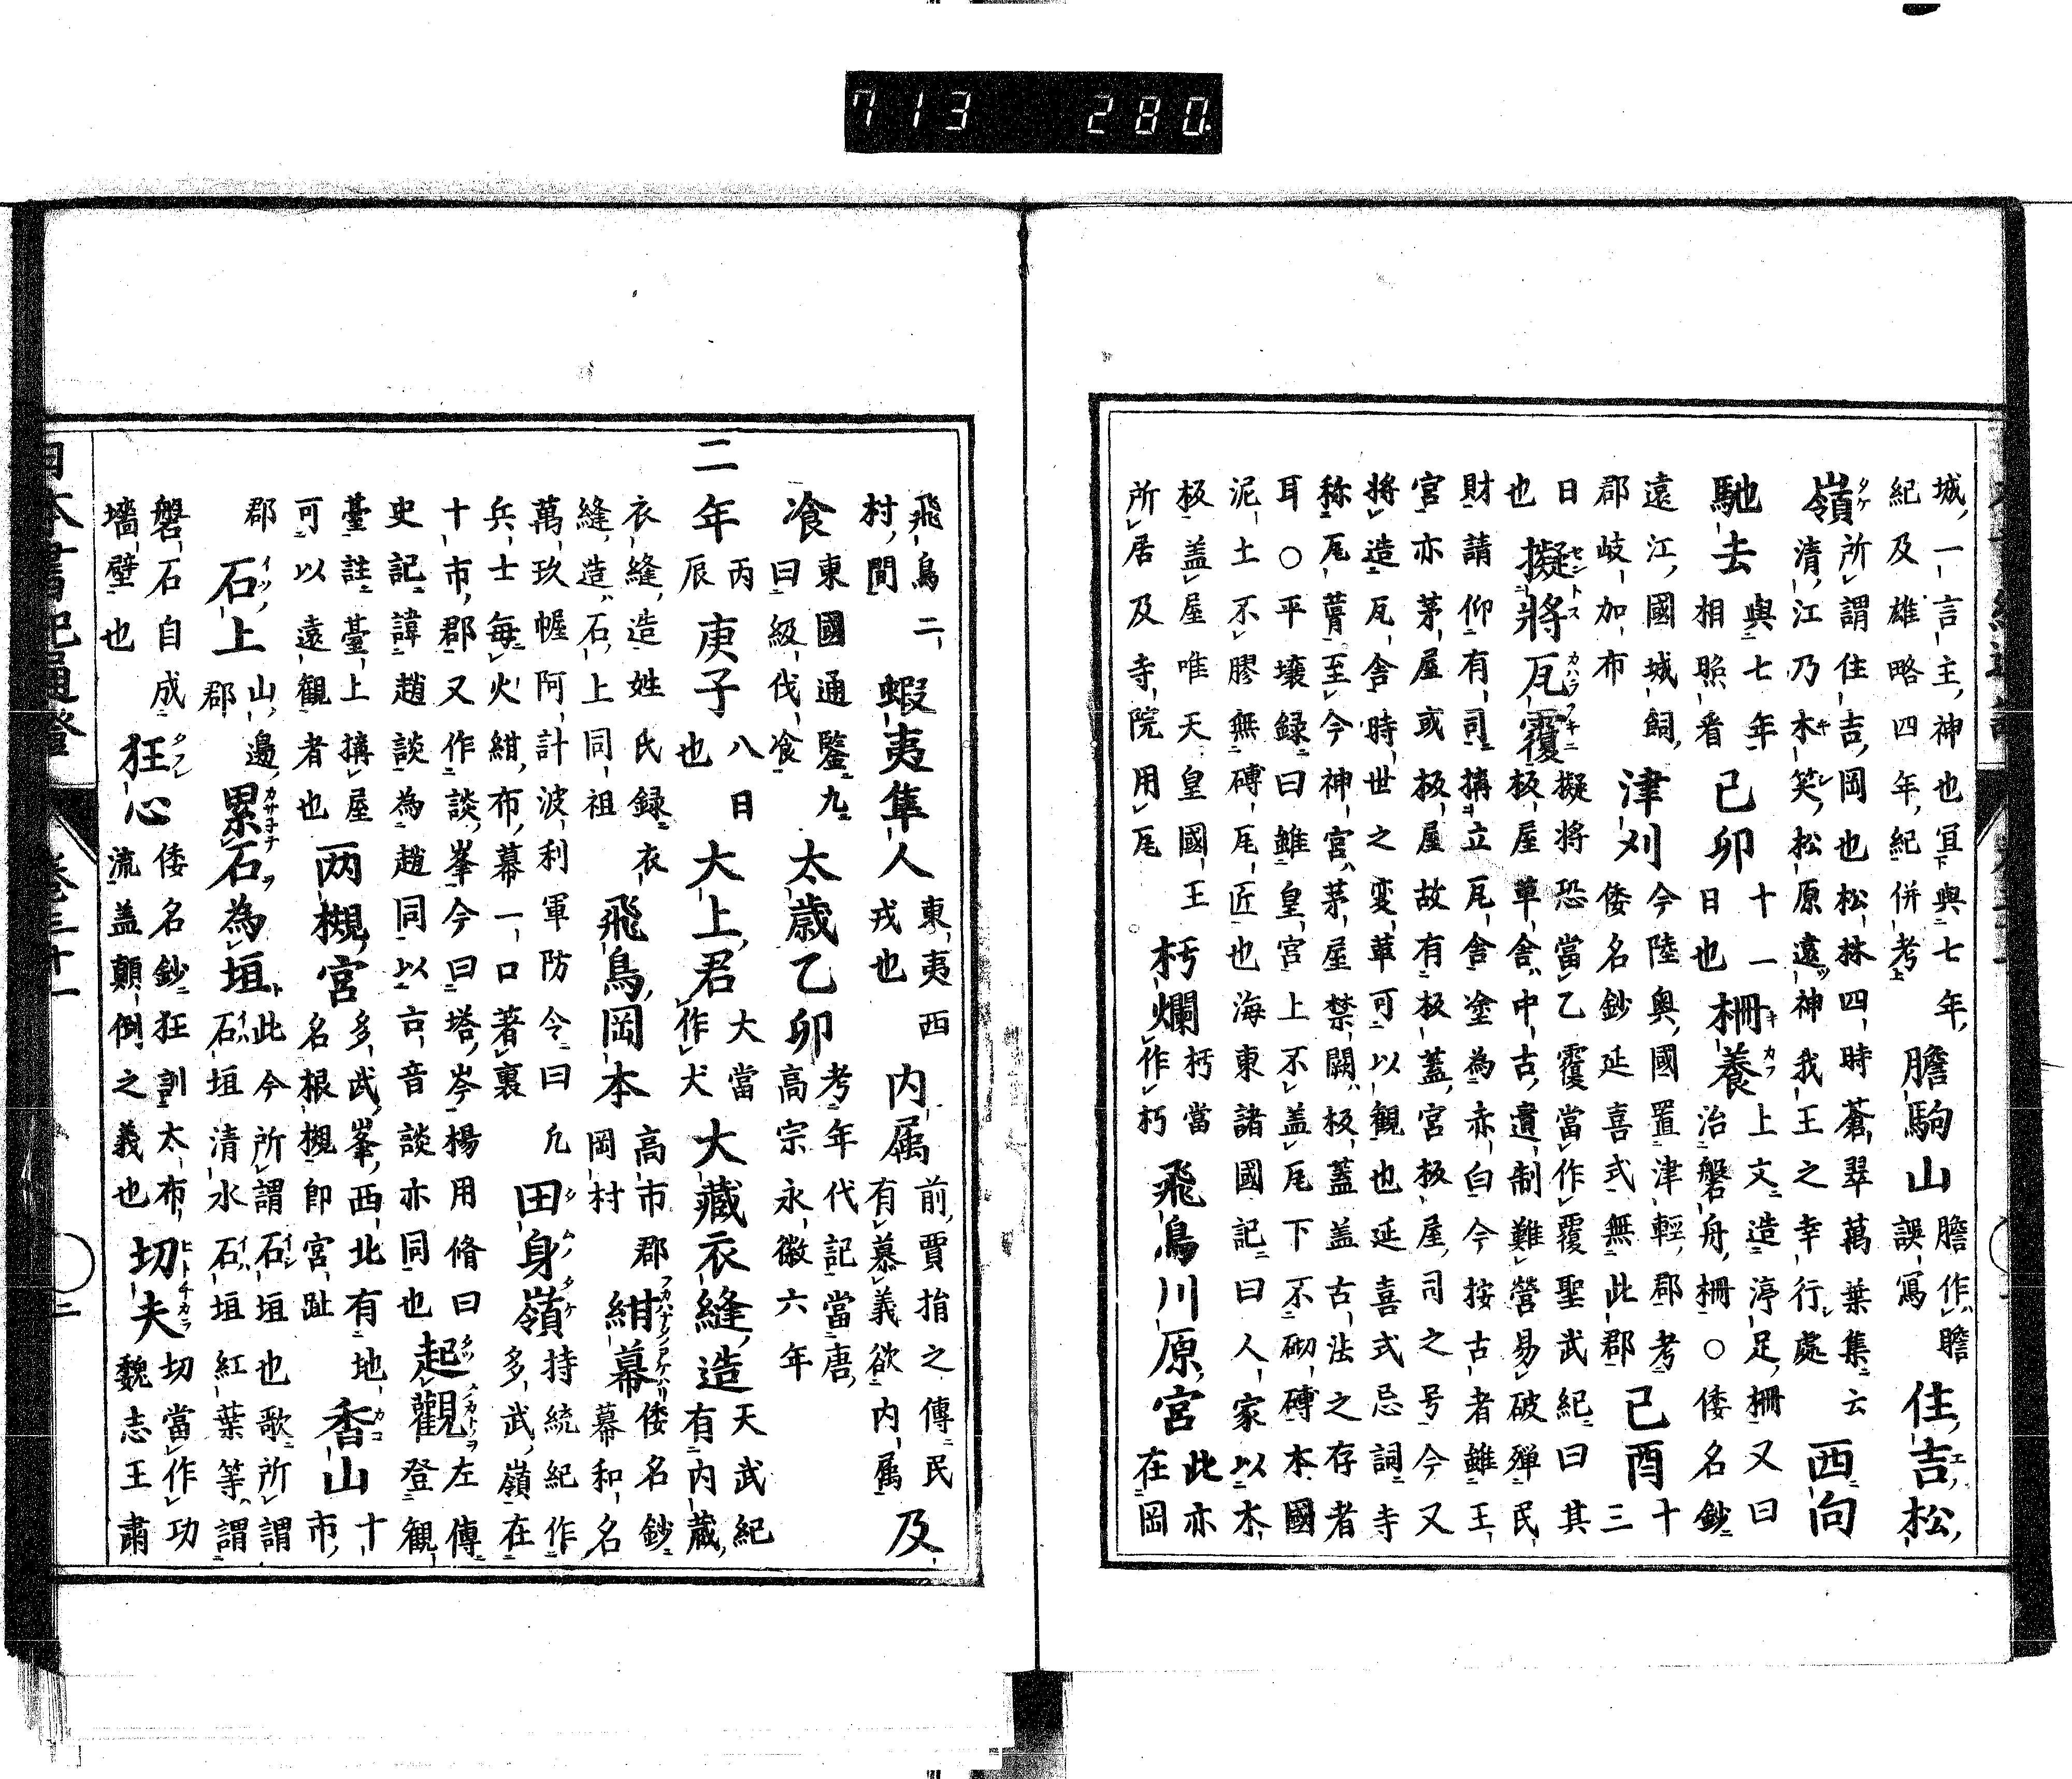 城一言主神也宜與七年
紀及雄略四年紀併考
膽駒山
膽作瞻
誤寫
住吉松
嶺
所謂住吉岡也松株四時蒼翠萬葉集云
清江乃木笑松原遠神我王之幸行處
西向
馳去
與七年
相照看
己卯
十一
日也
柵養
上文造渟足柵又曰
治磐舟柵○倭名鈔
遠江國城飼
郡岐加布
津刈
今陸奥國置津輕郡考
倭名鈔延喜式無此郡
己酉
十
三
日
也
擬將瓦覆
擬將恐當乙覆當作覆聖武紀曰其
板屋草舎中古遺制難營易破殫民
財請仰有司搆立瓦舎塗為赤白今按古者雖王
宮亦茅屋或板屋故有板蓋宮板屋司之号今又
將造瓦舎時世之変革可以觀也延喜式忌詞寺
称瓦葺至今神宮茅屋禁闕板蓋盖古法之存者
耳○平壤録曰雖皇宮上不盖瓦下不砌磚本國
泥土不膠無磚瓦匠也海東諸國記曰人家以木
板盖屋唯天皇國王
所居及寺院用瓦
朽爛
朽當
作朽
飛鳥川原宮
此亦
在岡
飛鳥二
村間
蝦夷隼人
東夷西
戎也
内属
前賈捐之傳民
有慕義欲内属
及
飡
東國通鑒九
曰級伐飡
太歳乙卯
考年代記當唐
高宗永徽六年
二年
丙
辰
庚子
八日
也
大上君
大當
作犬
大藏衣縫造
天武紀
有内蔵
衣縫造姓氏録衣
縫造石上同祖
飛鳥岡本
高市郡
岡村
紺幕
倭名鈔
幕和名
萬玖幄阿計波利軍防令曰凡
兵士毎火紺布幕一口著裏
田身嶺
持統紀作
多武嶺在
十市郡又作談峯今曰塔岑楊用脩曰
史記諱趙談為趙同以古音談亦同也
起觀
左傳
登觀
臺註臺上搆屋
可以遠観者也
两槻宮
多武峯西北有地
名根槻即宮趾
香山
十
市
郡
石上
山邊
郡
累石為垣
此今所謂石垣也歌所謂
石垣清水石垣紅葉等謂
磐石自成
墻壁也
狂心
倭名鈔狂訓太布
流盖顛倒之義也
切夫
切當作功
魏志王肅
日本書紀通證 卷三十一 二
713 280